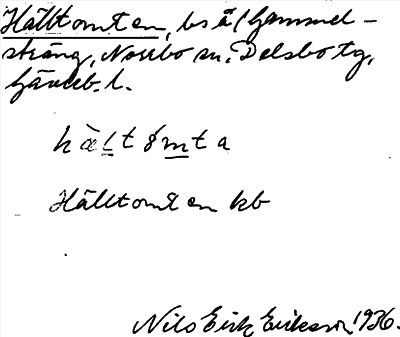 Hälltomten, bs å/Gammel-
sträng, Norrbo sn, Delsbo tg,
Gävleb. l.
hæltømta
Hälltomten kb
Nils Erik Eriksson 1936.